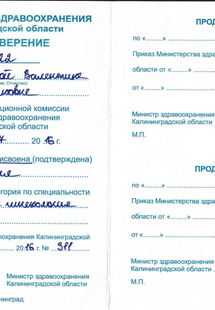 ЗДРАВООХРАНЕНИЯ
дской области
ВЕРЕНИЕ
22
Валентина
ационной комиссии
здравоохранения
ской области
20 16 г.
исвоена (подтверждена)
гория по специальности
гинекология
воохранения Калининградской
20 16 г. №
Министр здравоохранения
Калининградской области
нинград
ПРО
по «
Приказ Министерства здрав
области от «
Министр здравоохранения
Калининградской области
М.П.
ПРОД
по «
Приказ Министерства здра
области от «
Министр здравоохранения
Калининградской области
М.П.